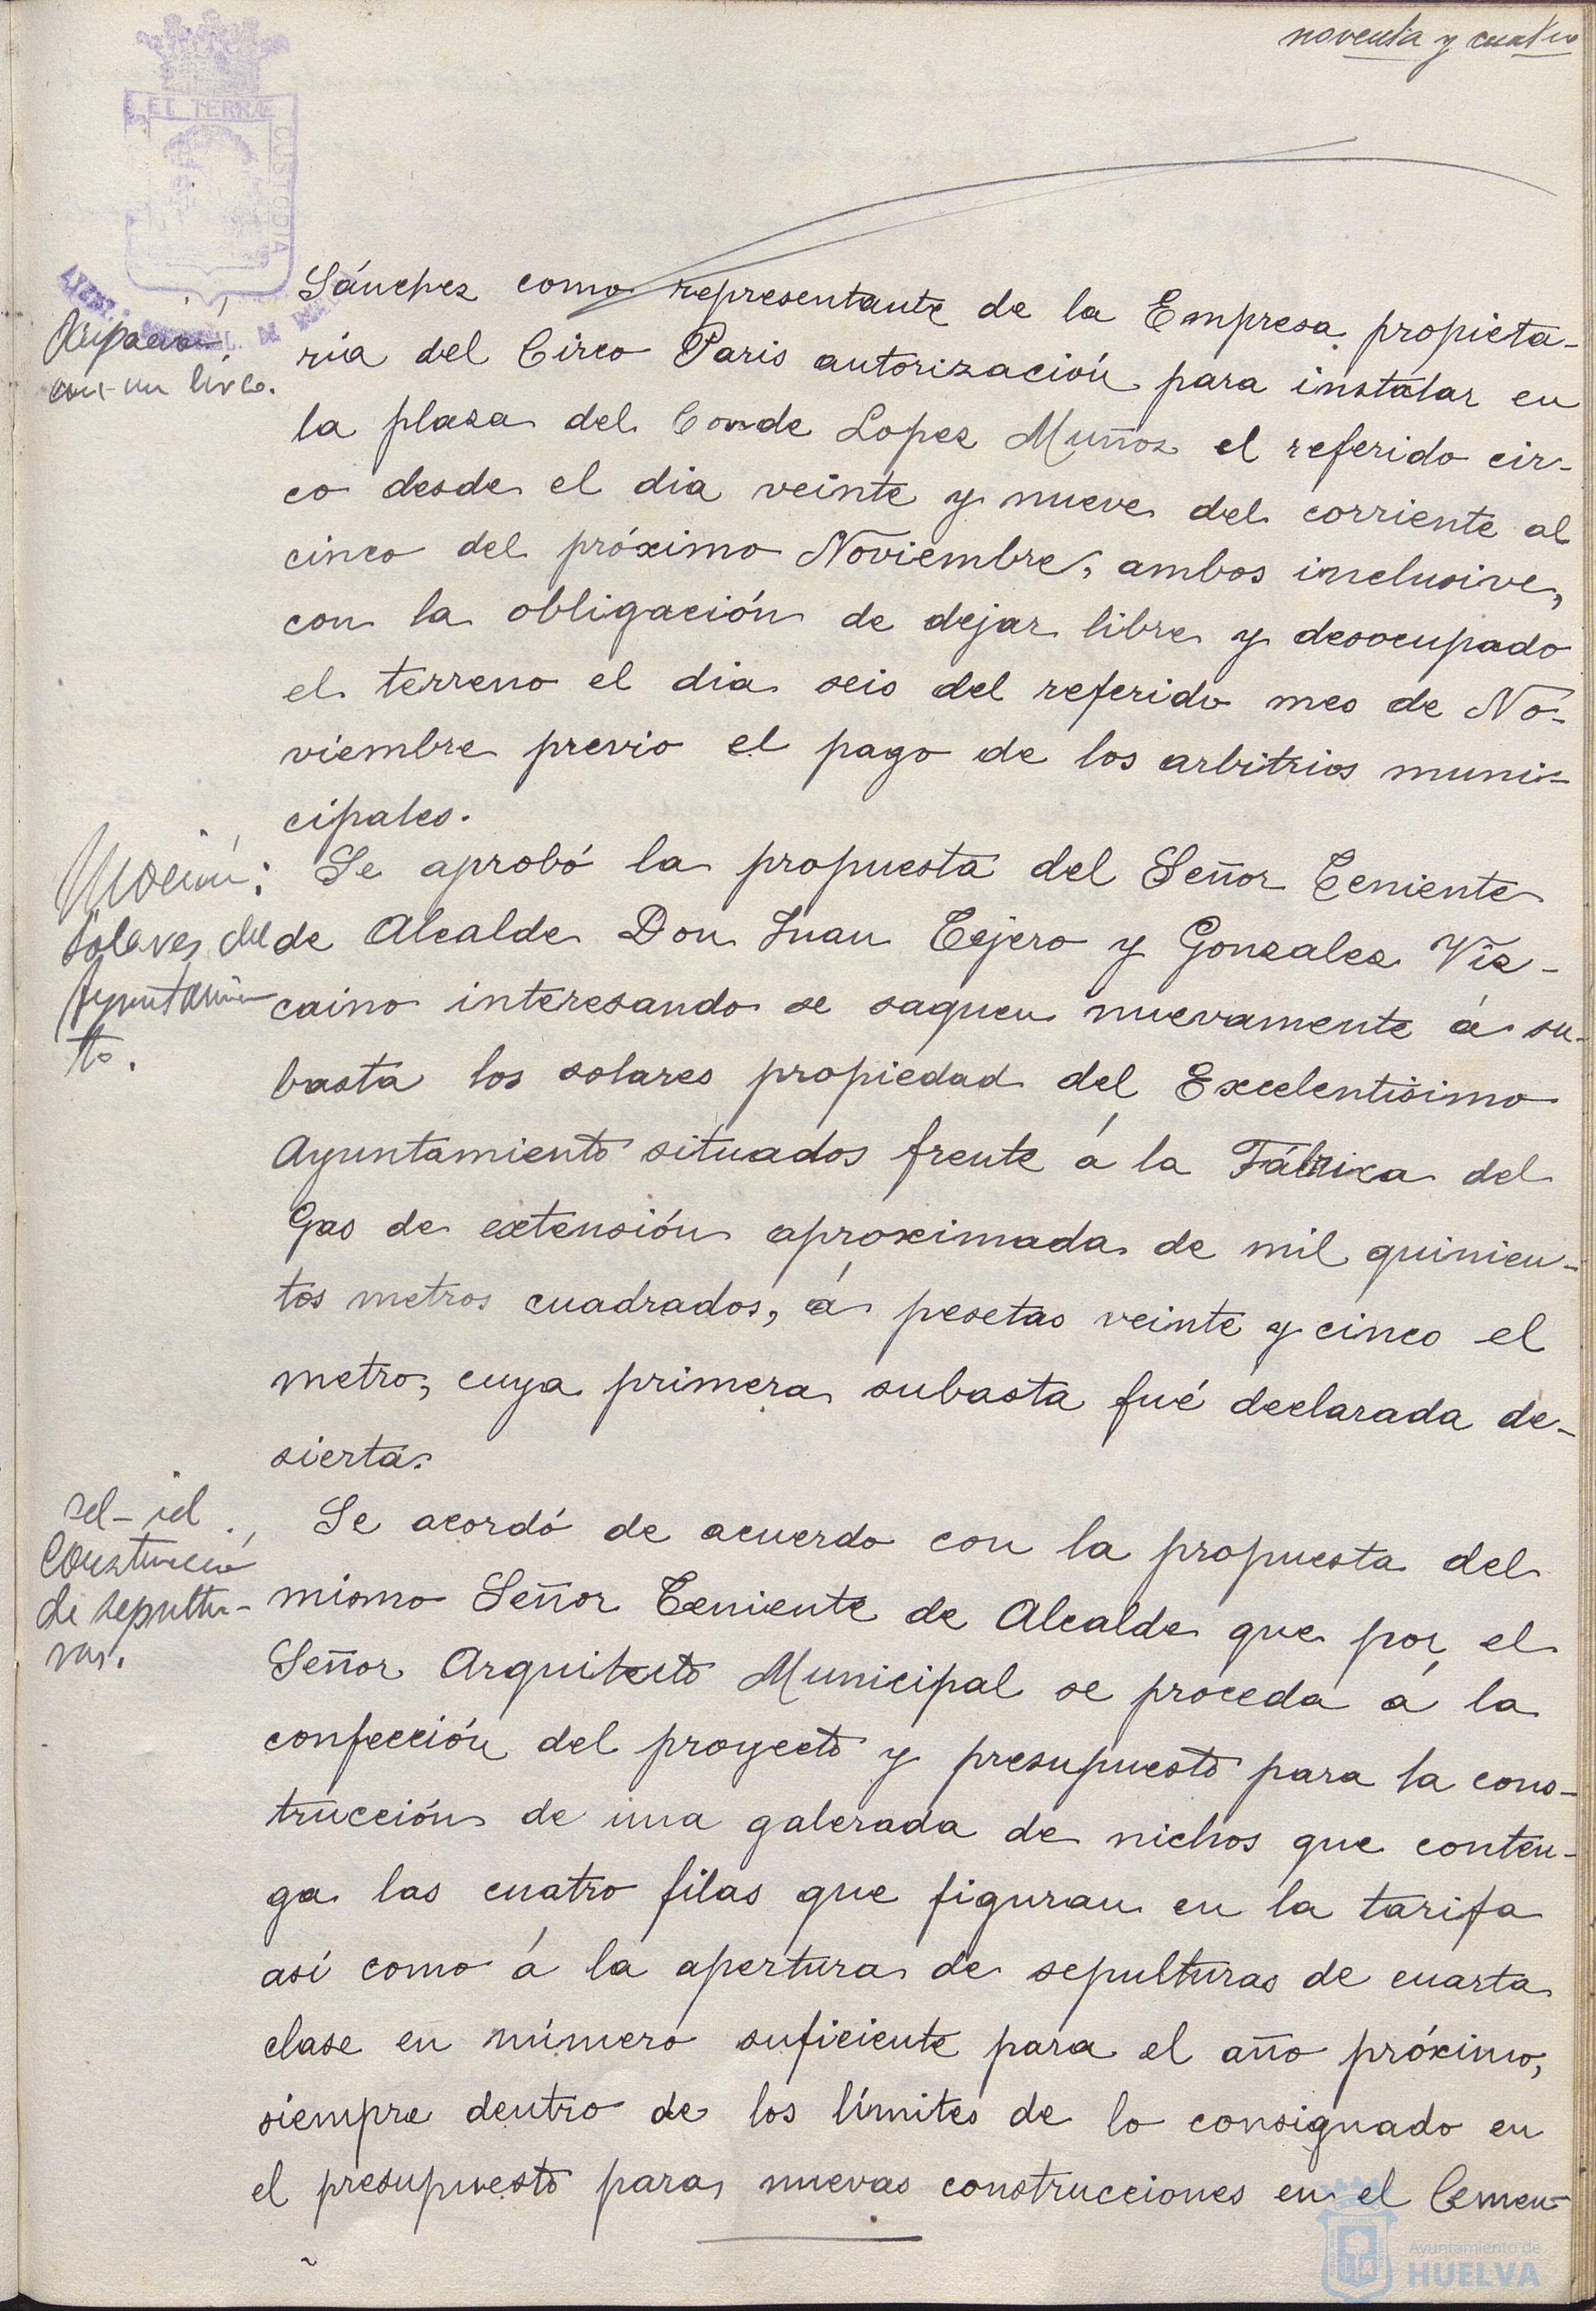 noventa y cuatro
ET TERRÆ
CUSTODIA
Sánchez como representante de la Empresa propieta-
Ocupación
con un circo.
ria del Circo Paris autorización para instalar en
la plaza del Conde Lopez Muñoz el referido cir-
co desde el dia veinte y nueve del corriente al
cinco del próximo Noviembre, ambos inclusive,
con la obligación de dejar libre y desocupado
el terreno el dia seis del referido mes de No-
viembre previo el pago de los arbitrios muni-
cipales.
Moción:
solares del
Ayuntamien
to.
Se aprobó la propuesta del Señor Teniente
de Alcalde Don Juan Tejero y Gonzalez Viz-
caino interesando se saquen nuevamente á su-
basta los solares propiedad del Excelentisimo
Ayuntamiento situados frente á la Fábrica del
Gas de extensión aproximada de mil quinien-
tos metros cuadrados, á pesetas veinte y cinco el
metro, cuya primera subasta fué declarada de-
sierta.
id-id.
Construcción
de sepultu-
ras.
Se acordó de acuerdo con la propuesta del
mismo Señor Teniente de Alcalde que por el
Señor Arquitecto Municipal se proceda á la
confección del proyecto y presupuesto para la cons-
trucción de una galerada de nichos que conten-
ga las cuatro filas que figuran en la tarifa
así como á la apertura de sepulturas de cuarta
clase en número suficiente para el año próximo,
siempre dentro de los límites de lo consignado en
el presupuesto para nuevas construcciones en el Cemen-
Ayuntamiento de
HUELVA